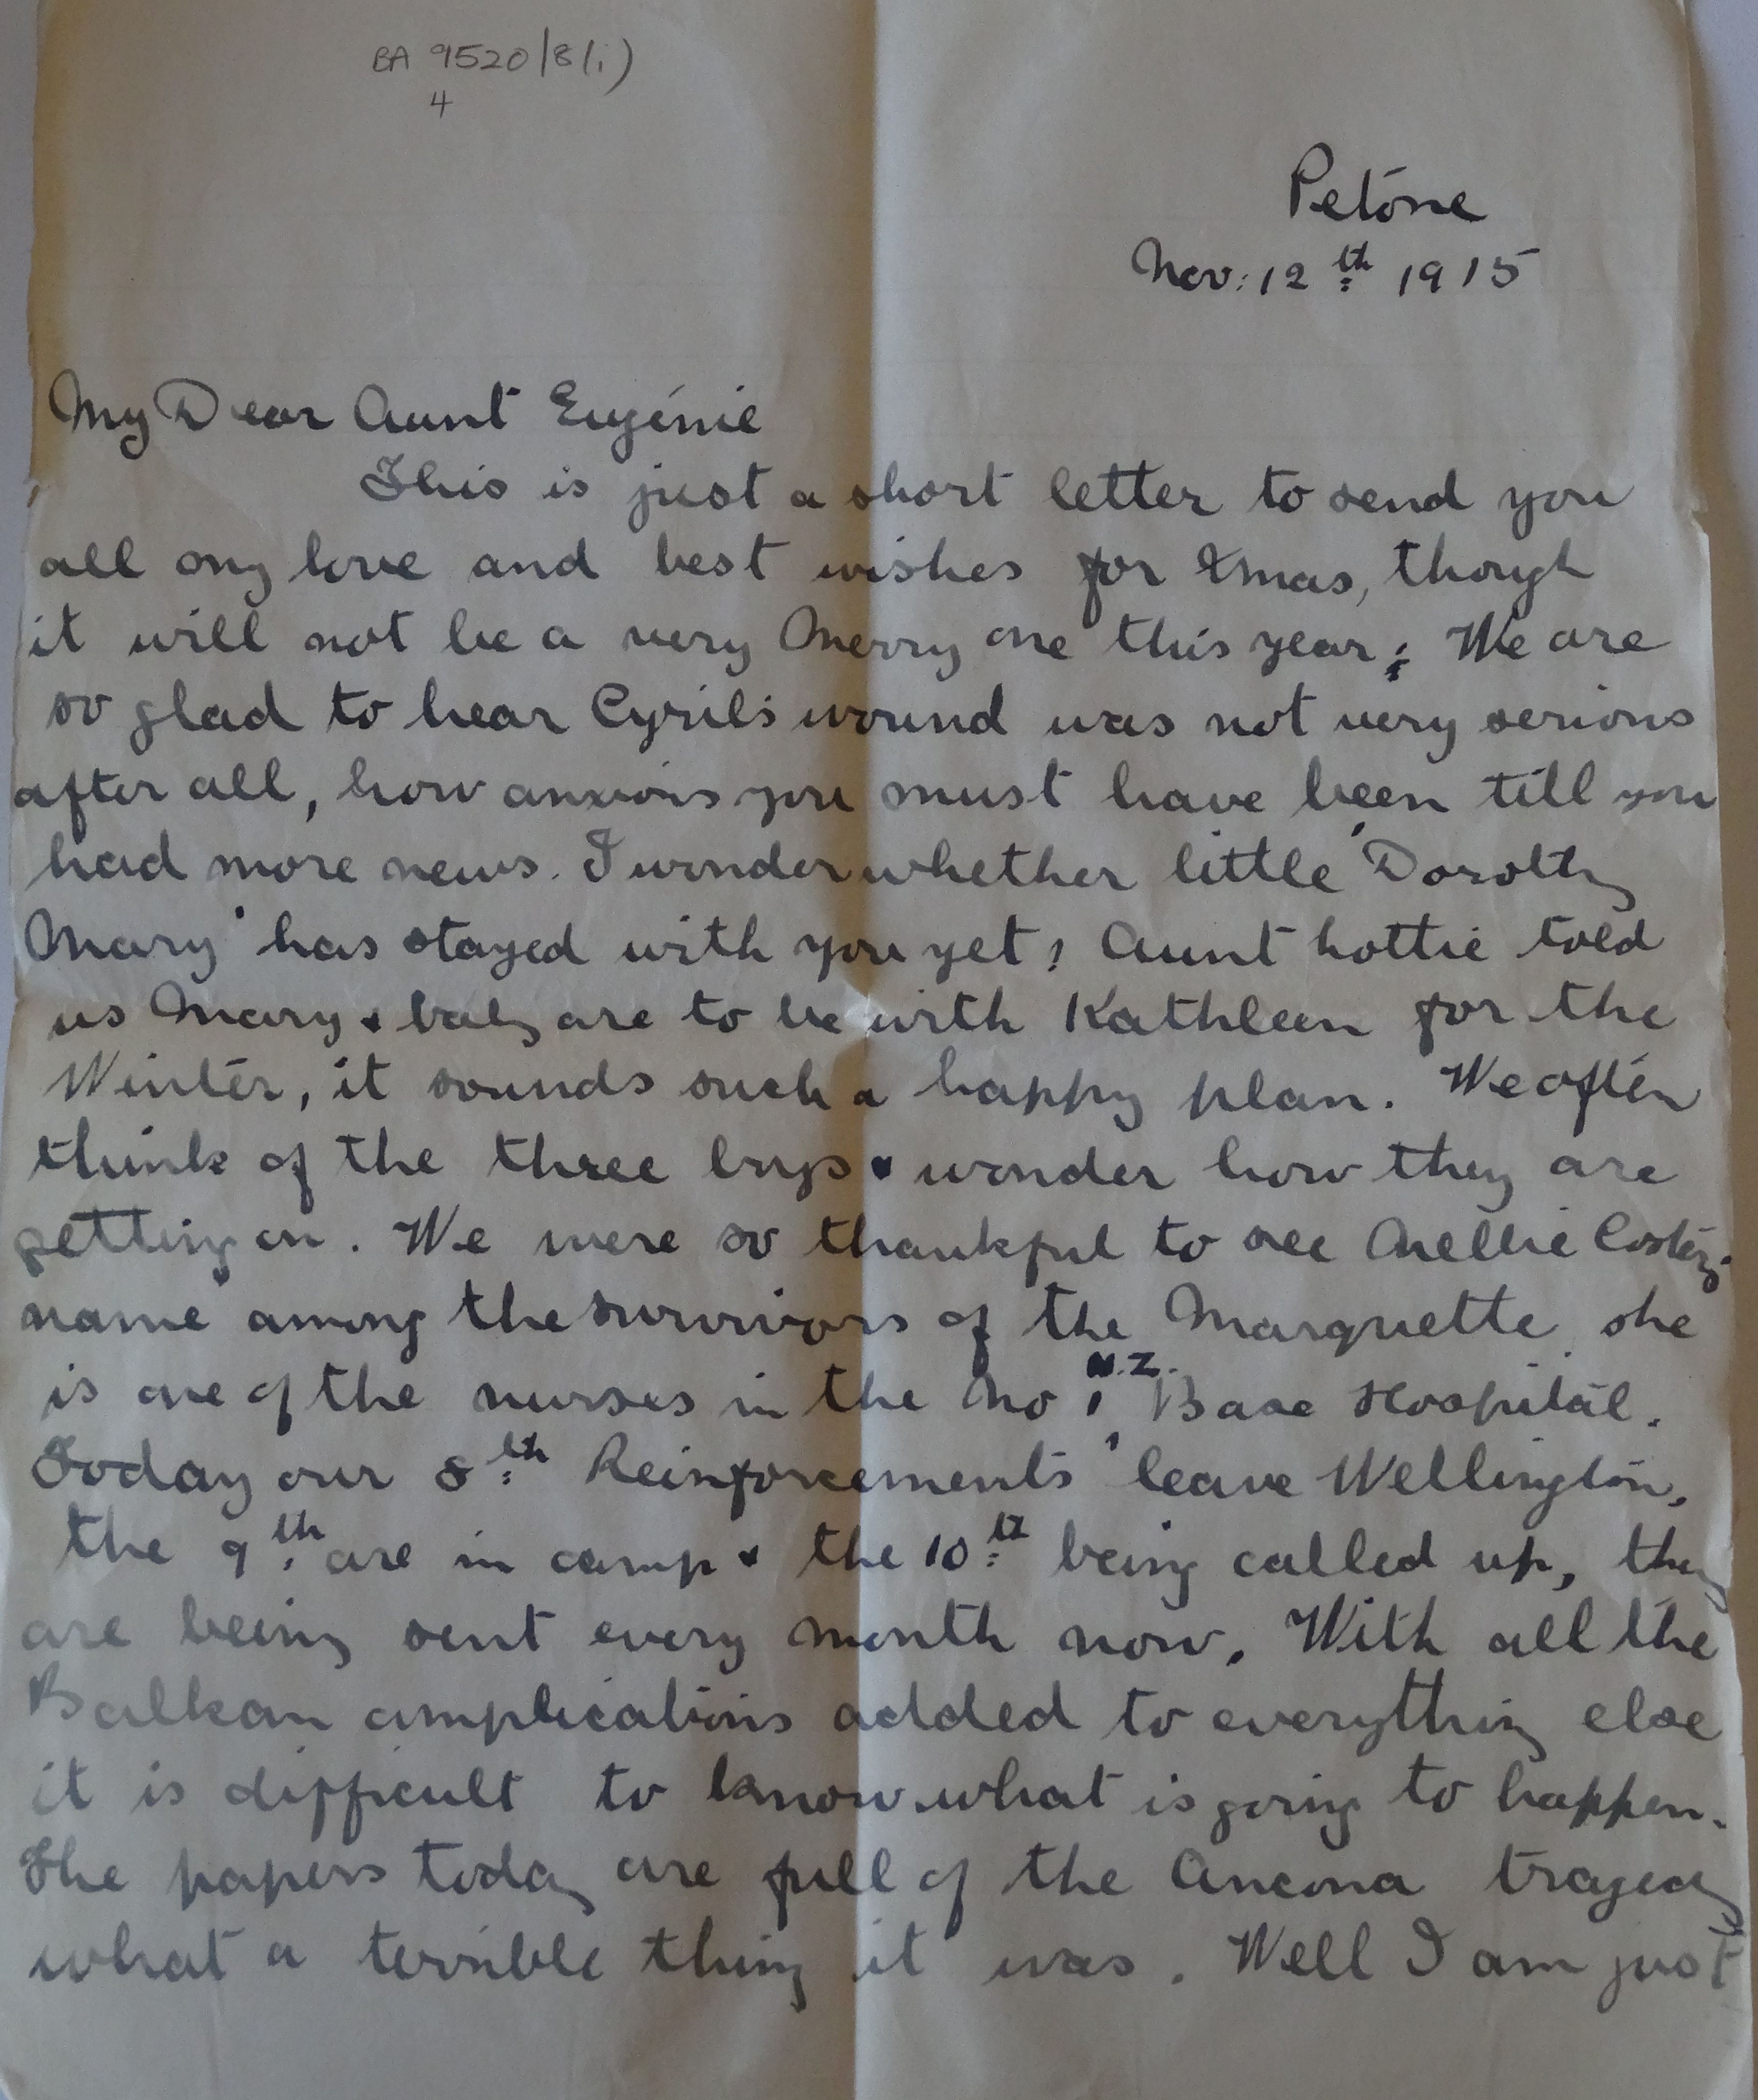 BA 9520/8(i)
4
Petone
Nov: 12th 1915
My Dear Aunt Eugénie
This is just a short letter to send you
all my love and best wishes for Xmas, though
it will not be a very Merry one this year; We are
so glad to hear Cyril's wound was not very serious
after all, how anxious you must have been till you
had more news. I wonder whether little 'Dorothy
Mary' has stayed with you yet? Aunt Lottie told
us Mary & baby are to be with Kathleen for the
Winter, it sounds such a happy plan. We often
think of the three boys & wonder how they are
getting on. We were so thankful to see Nellie Coster's
name among the survivors of the Marquette she
is one of the nurses in the No 1 N.Z. Base Hospital.
Today our 8th Reinforcements leave Wellington,
the 9th are in camp & the 10th being called up, they
are being sent every month now. With all the
Balkan complications added to everything else
it is difficult to know what is going to happen.
The papers today are full of the Ancona tragedy
what a terrible thing it was. Well I am just